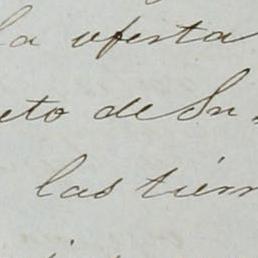 la oferta
eto de Sn
las tierr